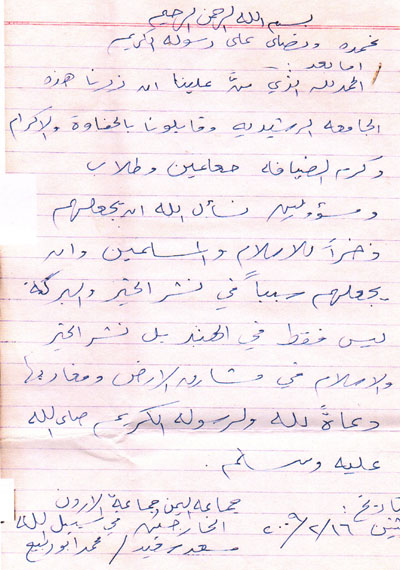 بسم الله الرحمن الرحيم
نحمده ونصلى على رسوله الكريم
اما بعد :
الحمد لله الذي منَّ علينا ان زرنا هذه
الجامعه الرشيديه وقابلونا بالحفاوة والاكرام
وكرم الضيافه معلمين وطلاب
ومسؤولين نسأل الله ان يجعلهم
ذخراً للاسلام والمسلمين وان
يجعلهم سبباً في نشر الخير والبركة
ليس فقط في الهند بل نشر الخير
والاسلام في مشارق الارض ومغاربها
دعاةً لله ولرسوله الكريم صلى الله
عليه وسلم .
جماعة اليمن جماعة الاردن
الخارجين في سبيل الله
٢٠٠٩/٢/١٦
محمد ابو ربيع